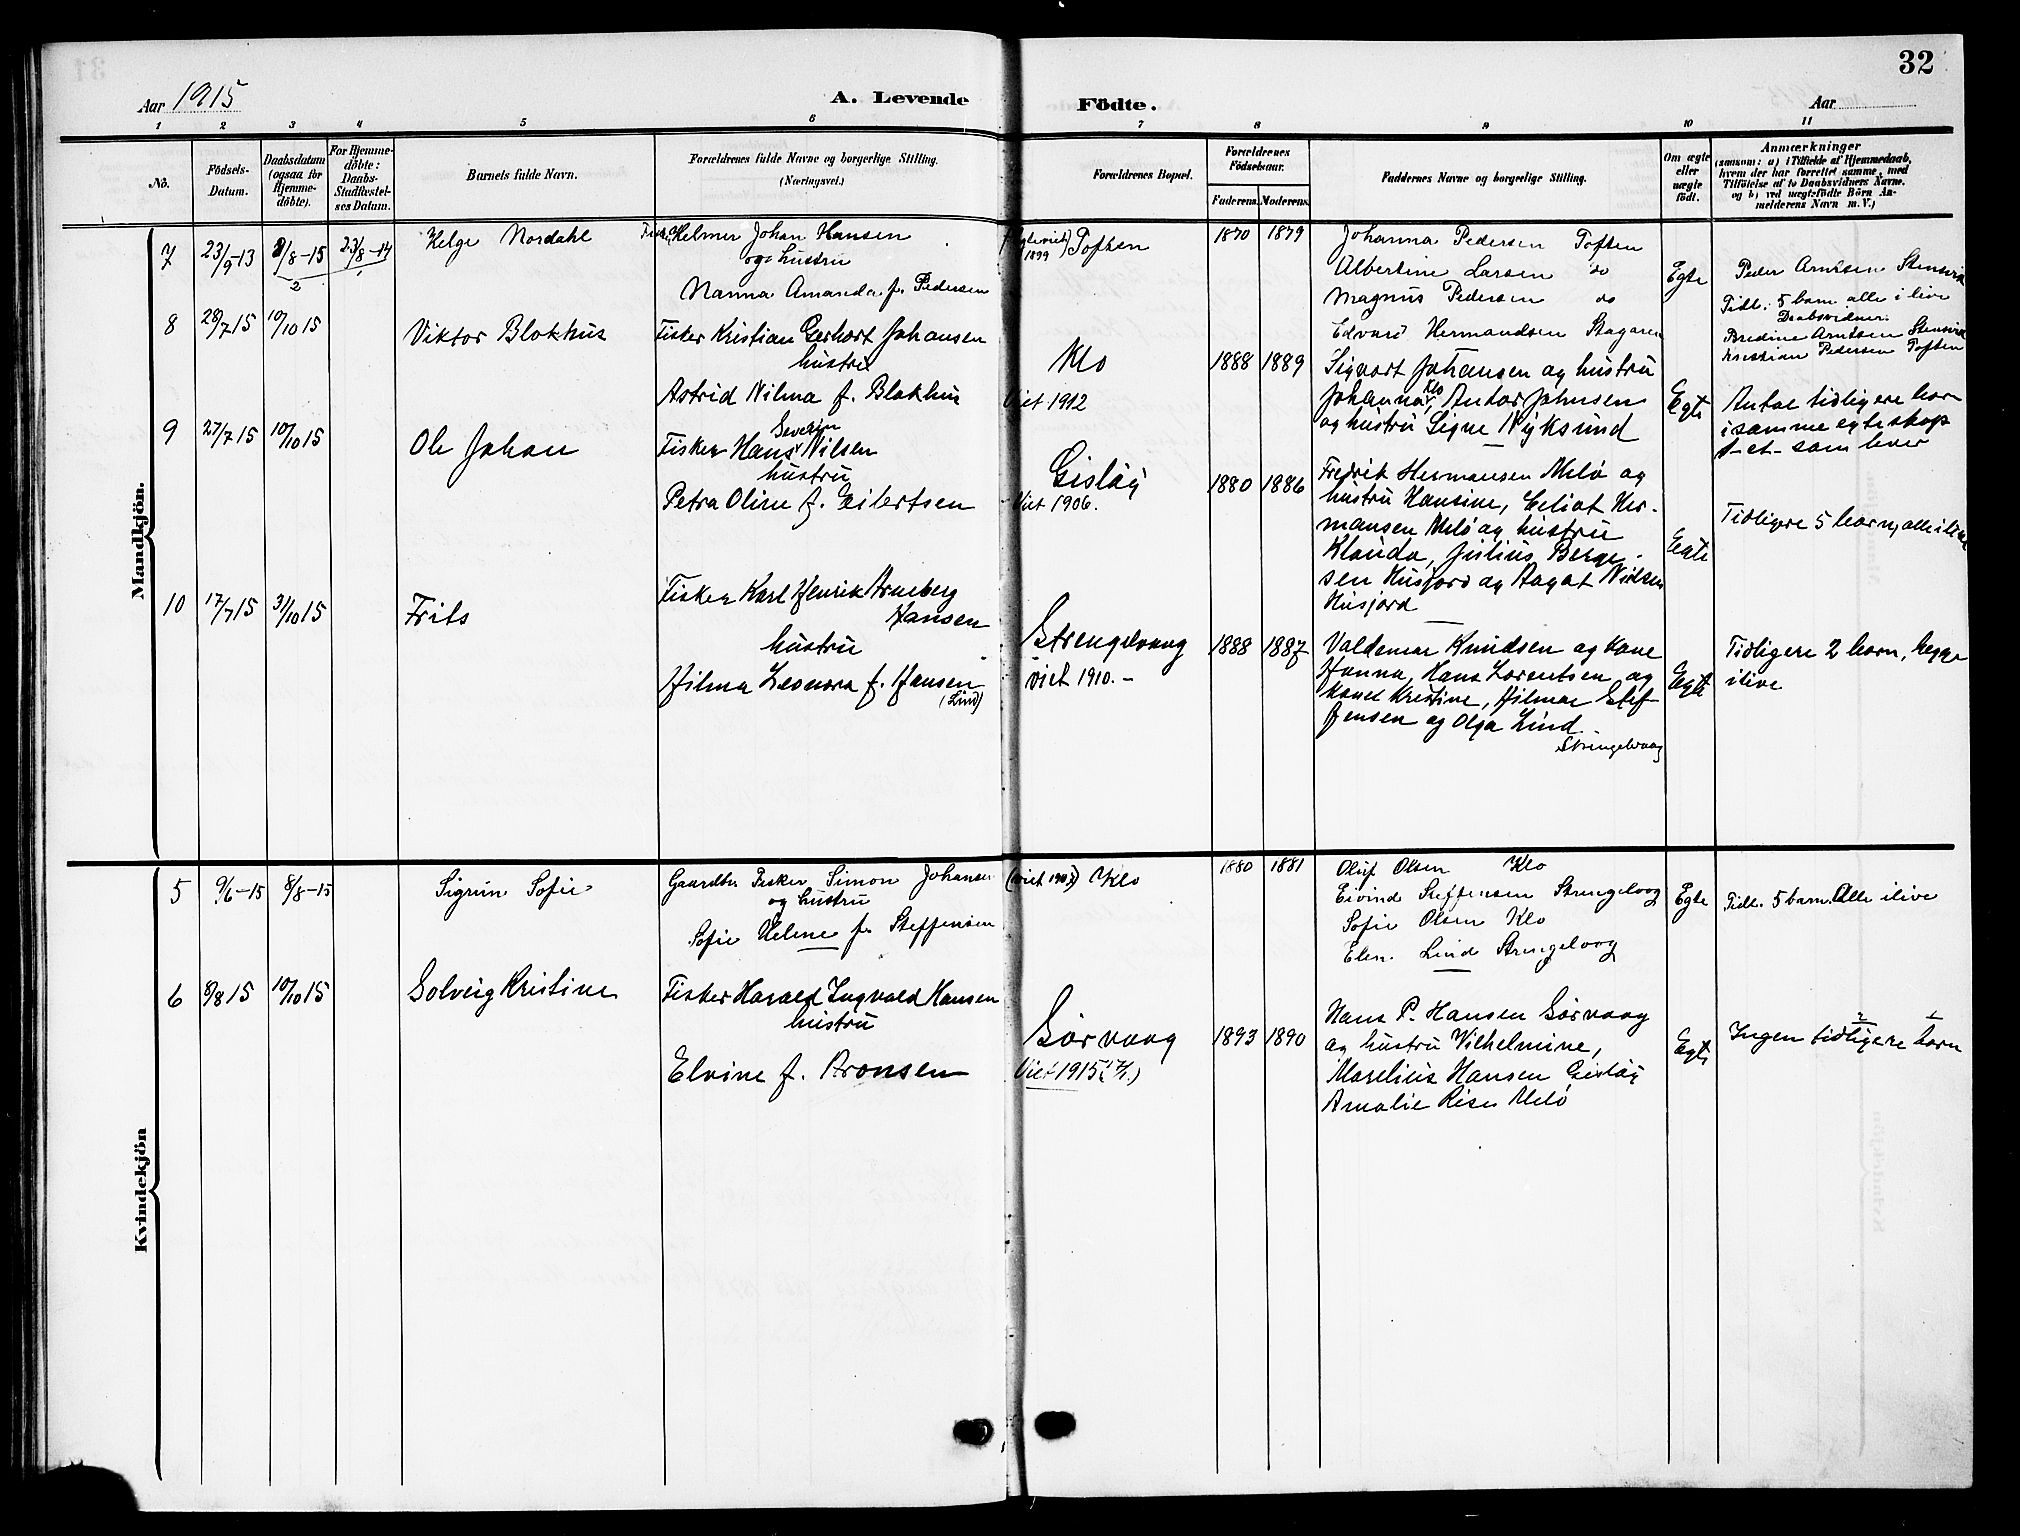 32
Aar 1915
A. Levende
Födte.
Aar
1 2 3 4 5 6 7 8 9 10 11
No.
Födsels-
Datum.
Daabsdatum
(ogsaa for
Hjemme-
döbte).
For Hjemme-
döbte:
Daabs-
Stadfæstel-
ses Datum.
Barnets fulde Navn.
Forældrenes fulde Navne og borgerlige Stilling.
(Næringsvei.)
Forældrenes Bopæl.
Forældrenes
Födselsaar.
Faderens. Moderens.
Faddernes Navne og borgerlige Stilling.
Om ægte
eller
uægte
födt.
Anmærkninger
(saasom: a) i Tilfælde af Hjemmedaab,
hvem der har forrettet samme, med
Tilföielse af to Daabsvidners Navne.
og b) ved uægtefödte Börn An-
melderens Navn m. V.)
Mandkjön.
7 23/9-13 8/8-15 23/8-14
Helge Nordahl
Helmer Johan Hansen
og hustru
Nanna Amanda f. Pedersen
1899 Toften
1870 1879
Johanna Pedersen Toften
Albertine Larsen do
Magnus Pedersen do
Edvard Hermandsen Skagaren
Egte
Peder Arntsen Stensvik
Tidl. 5 barn alle i live
Daabsvidner:
Bredine Arntsen Stensvik
Kristian Pedersen Toften
8 28/7 15 10/10 15
Viktor Blokhus
Fisker Kristian Gerhart Johansen
hustru
Astrid Nilma f. Blokhus
Klo
Viet 1912
1888 1889
Sigvart Johansen og hustru
Johanna, Klo Antor Johnsen
og hustru Signe Nyksund
Egte
Antal tidligere barn
i samme egteskap
1 - et - som lever
9 27/7 15 10/10 15
Ole Johan
Fisker Hans Severin Nilsen
hustru
Petra Oline f. Eilertsen
Gisløy
Viet 1906.
1880 1886
Fredrik Hermansen Melø og
hustru Hansine, Eliot Her-
mansen Melø og hustru
Klauda, Julius Berge-
sen Husjord og Aagot Nielsen
Husjord
Egte
Tidligere 5 barn, alle i live
10 17/7 15 31/10 15
Frits
Fisker Karl Henrik Arneberg
Hansen
hustru
Hilma Leonora f. Hansen
(Lind)
Strengelvaag
viet 1910. -
1888 1887
Valdemar Knudsen og kone
Hanna, Hans Lorentsen og
kone Kristine, Hilmar Stef-
fensen og Olga Lind
Strengelvaag
Egte
Tidligere 2 barn, begge
i live
Kvindekjön
5 9/6-15 8/8-15
Sigrun Sofie
Gaardbr. Fisker Simon Johansen
og hustru
Sofie Helene f. Steffensen
Klo
1880 1881
Oluf Olsen Klo
Eivind Steffensen Strengelvog
Sofie Olsen Klo
Elen Lind Strengelvog
Egte
Tidl. 5 barn. Alle i live
6 8/8 15 10/10 15
Solveig Kristine
Fisker Harald Ingvald Hansen
hustru
Elvine f. Aronsen
Sørvaag
Viet 1915
1893 1890
Hans P. Hansen Sørvaag
og hustru Vilhelmine,
Marelius Hansen Gisløy
Amalie Riise Melø
Egte
Ingen tidligere barn